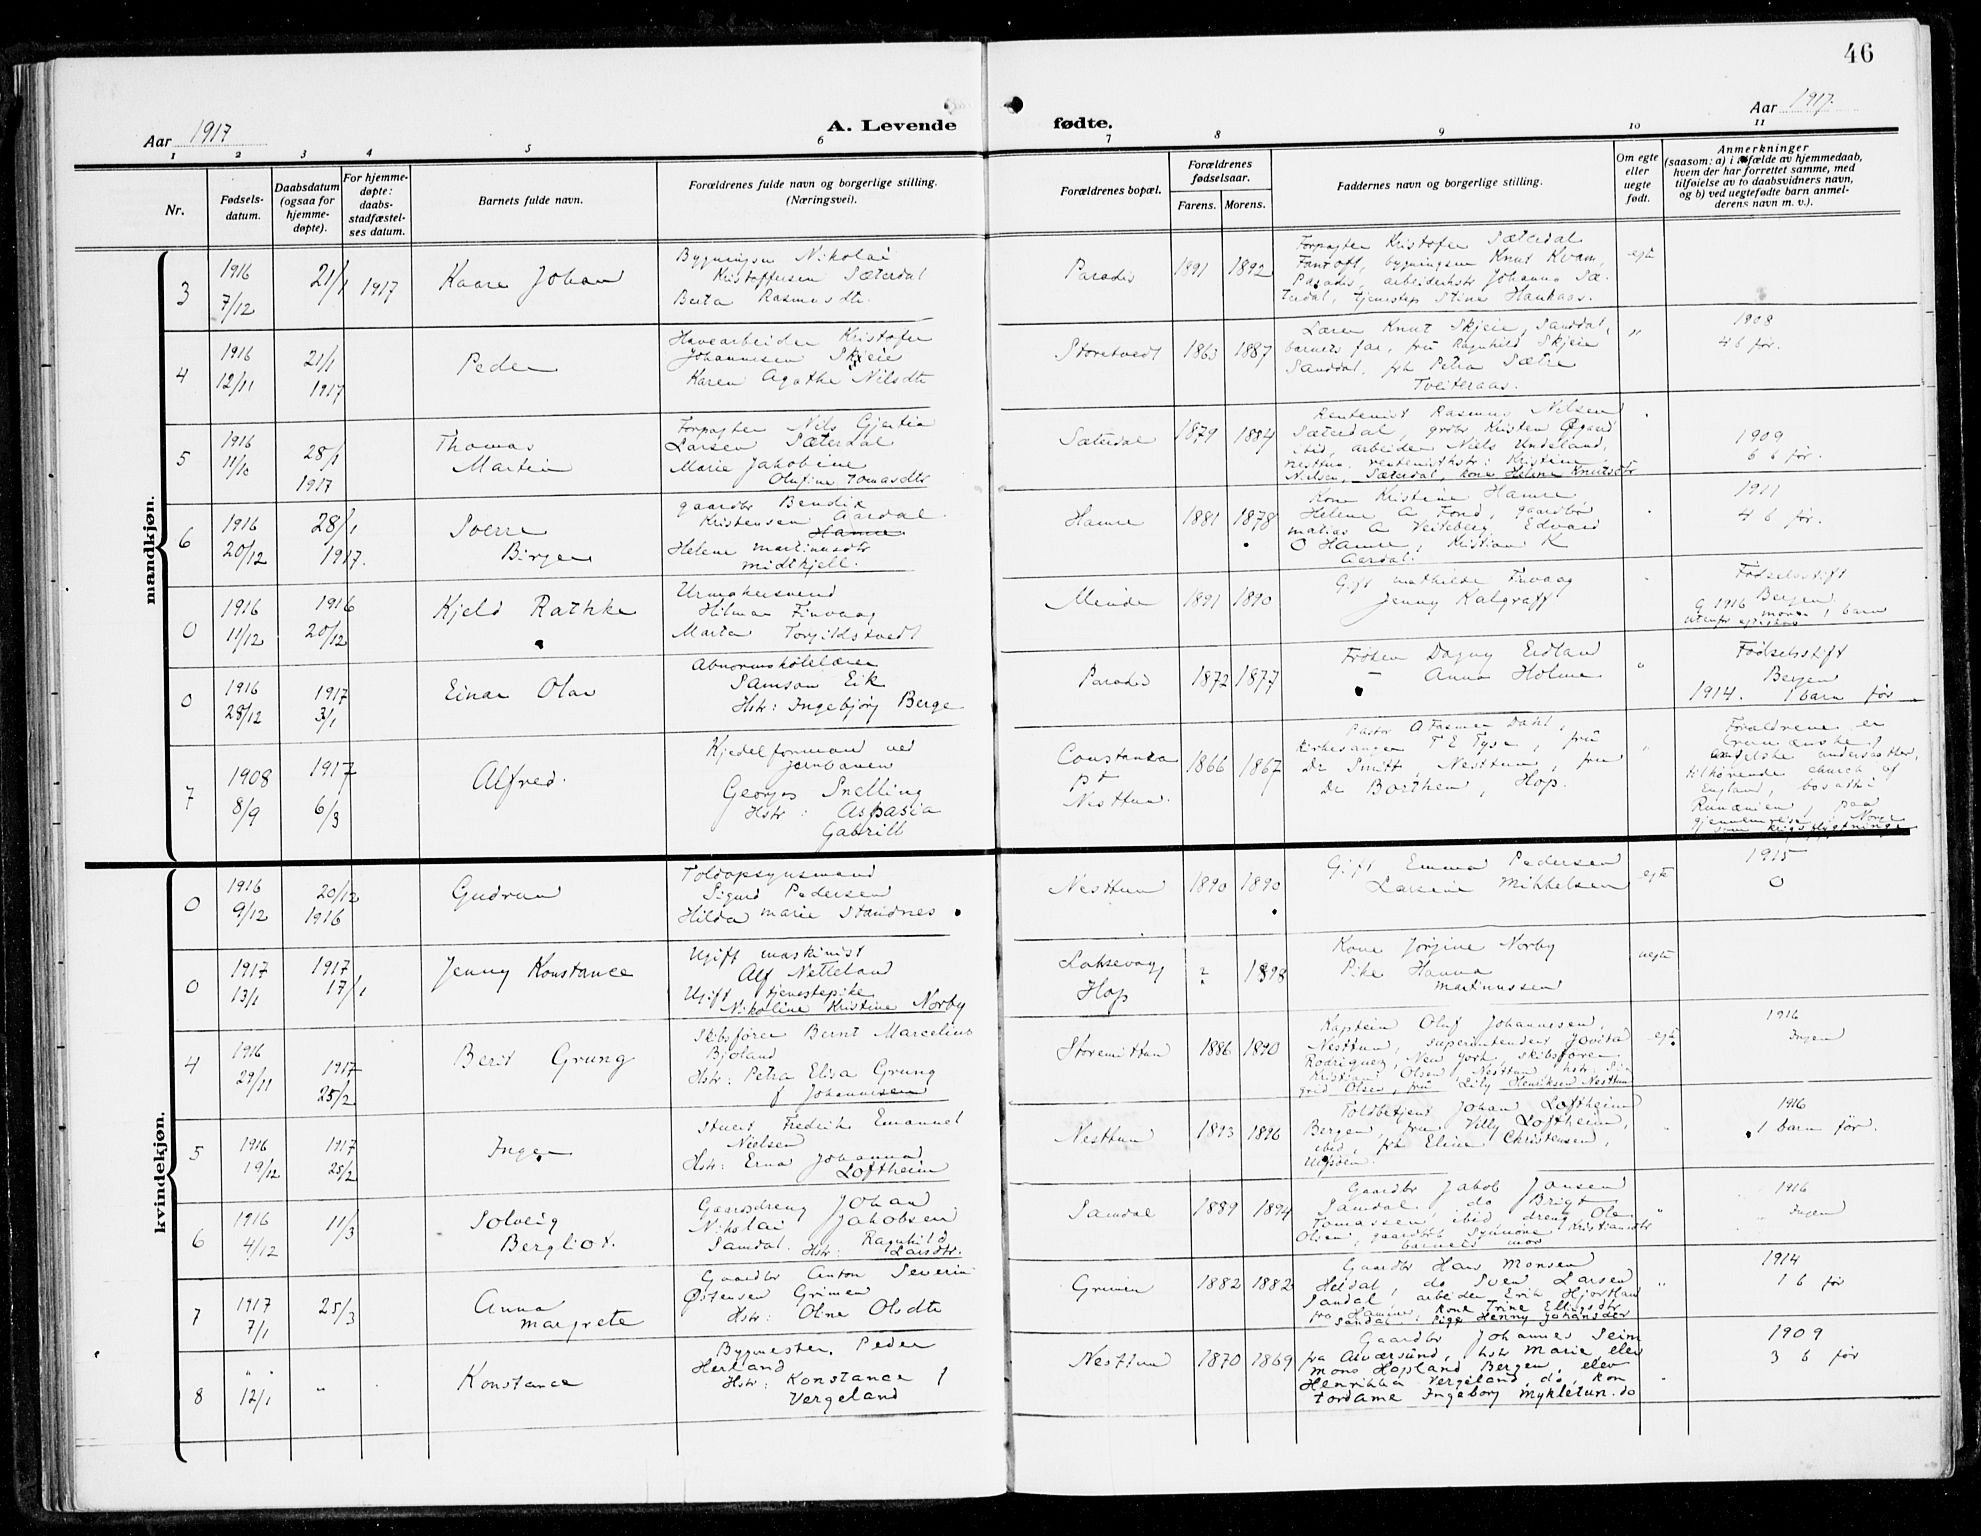 46
Aar 1917
A. Levende
fødte.
Aar 1917.
1 2 3 4 5 6 7 8 9 10 11
Nr.
Fødsels-
datum.
Daabsdatum
(ogsaa for
hjemme-
døpte).
For hjemme-
døpte:
daabs-
stadfæstel-
ses datum.
Barnets fulde navn.
Forældrenes fulde navn og borgerlige stilling.
(Næringsvei).
Forældrenes bopæl.
Forældrenes
fødselsaar.
Farens. Morens.
Faddernes navn og borgerlige stilling.
Om egte
eller
uegte
født.
Anmerkninger
(saasom: a) i tilfælde av hjemmedaab,
hvem der har forrettet samme, med
tilføielse av to daabsvidners navn,
og b) ved uegtefødte barn anmel-
derens navn m. v.).
mandkjøn.
3
1916
7/12
21/1 1917
Kaare Johan
Bygningsn Nikolai
Kristoffersen Sæterdal
Berta Rasmusdtr.
Paradis
1891 1892
Forpagter Kristofer Sæterdal
Fantoft, bygningsm Knut Kvam,
Paradis, arbeiderhstr Johanna Sæ-
terdal, tjenestep Stine Haukaas.
egte
4
1916
12/11
21/1
1917
Peder
Havearbeider Kristofer
Johannesen Skjeie
Karen Agathe Nilsdtr
Storetvedt
1863 1887
Lærer Knut Skjeie, Sanddal,
barnets far, fru Ragnhild Skjeie
Sanddal, frk Petra Sætre
Tveiteraas.
"
1908
4 b før.
5
1916
11/10
28/1
1917
Thomas
Martin
Forpagter Nils Gjertin
Larsen Sæterdal
Marie Jakobine
Olufine Tomasdtr
Sæterdal
1879 1884
Rentenist Rasmus Nilsen
Sæterdal, grdbr Kristen Øgaard
ibid, arbeider Niels Undeland,
Nesttun, rentenisthstr: Kristine
Nielsen, Sæterdal, kone Helene Knutsdtr
1909
6 b før.
6
1916
20/12
28/1
1917.
Sverre
Birger
gaardbr Bendix
Kristensen Aardal
Hamre
Helene Martinusdtr
Midtkjell.
Hamre
1881 1878
Kone Kristine Hamre,
Helene A Fond, gaardbr
Matias A Veiteberg, Edvard
O Hamre, Kristian K
Aardal.
1911
4 b før.
0
1916
11/12
1916
20/12
Kjeld Rathke
Urmakersvend
Hilmar Finvaag
Marta Torgildstvedt
Minde
1891 1890
Gift Mathilde Finvaag
Jenny Kalgraff
Fødselsstift
Bergen
G 1916 1 barn
0
1916
28/12
1917
3/1
Einar Olav
Abnormskolelærer
Samson Eik
Hstr: Ingebjørg Berge
Paradis
1872 1877
Frøken Dagny Eidland
— Anna Holme
"
Fødselsstift
Bergen
1914. 1 barn før
7
1908
8/9
1917
6/3
Alfred.
Kjedelformann ved
jernbanen
Georges Snelling
Hstr: Aspasia
Gabrill
Constanza
pt
Nesttun.
1866 1867
Pastor O Fasmer Dahl,
Kirkesanger T E Tysse, fru
Dr Smitt, Nesttun, fru
Dr Borthen, Hop.
"
Forældrene er
engelske undersaatter,
tilhørende church of
England, bosatte i
Rumænien, paa
gjennemreise i Norge
som krigsflygtninge
kvindekjøn.
0
1916
9/12
20/12
1916
Gudrun
Toldopsynsmand
Sigurd Pedersen
Hilda Marie Standnes
Nesttun
1890 1890
Gift Emma Pedersen
Larsine Mikkelsen
egte
1915
0
0
1917
13/1
1917
17/1
Jenny Konstance
Ugift maskinist
Alf Netteland
Ugift tjenestepike
Nikoline Kristine Norby
Laksevaag
Hop
? 1898
Kone Jørgine Norby
Pike Hanna
Martinussen
uegte
4
1916
29/11
1917
25/2
Berit Grung
Skibsfører Bernt Marcelius
Bjoland
Hstr: Petra Elisa Grung
f Johannesen
Storemittun
1886 1890
Kaptein Oluf Johannesen,
Nesttun, superintendent Jovita
Rodriguez, New York, skibsfører
Kristian Olsen, Nesttun, hstr Si-
grid Olsen, fru Lily Henriksen Nesttun
egte.
1916
Ingen
5
1916
19/12
1917
25/2
Inger
Stuert Fredrik Emanuel
Nielsen
Hstr: Erna Johanna
Loftheim
Nesttun
1893 1896
Toldbetjent Johan Loftheim
Bergen, fru Villy Loftheim,
ibid, frk Eline Christensen,
"
1916
1 barn før.
6
1916
4/12
11/3
Solveig
Bergliot.
Gaardsdreng Johan
Nikolai Jakobsen
Samdal. Hstr: Ragnhild
Larsdtr.
Samdal
1889 1894
Gaardbr Jakob Jansen
Samdal, do Brigt
Tomassen, ibid dreng Ole
Olsen, gaardbrk Synnøve Kristiansdtr
barnets mor
"
1916
Ingen
7
1917
7/1
25/3
Anna
Margrete
Gaardbr Anton Severin
Østensen Grimen
Hstr: Oline Olsdtr
Grimen
1882 1882
Gaardbr Hans Monsen
Heldal, do Sven Larsen
Sandal, arbeider Erik Hjortland
fra Hamre, kone Trine Ellingsdtr
Sandal, Pige Henny Johansdtr
"
1914
1 b før
8
" "
12/1
"
Konstance
Bygmester, Peder
Herland
Hstr: Konstance f
Vergeland
Nesttun
1870 1869
Gaardbr Johannes Seim
fra Alværsund, hstr Marie, elev
Mons Hopland Bergen, elev
Henrikka Vergeland, do, kon
tordame Ingeborg Mykletun, do
1909
3 b før